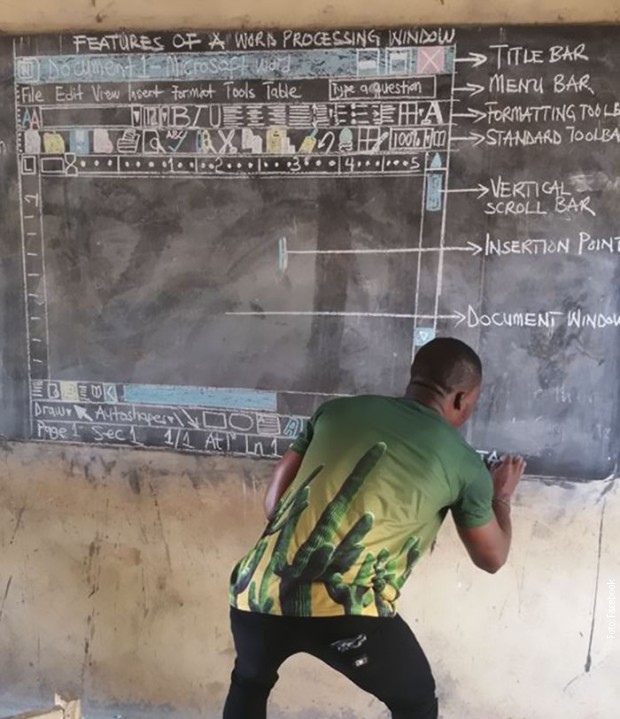 FEATURES OF A WORD PROCESSING WINDOW
Document 1 - Microsoft word
TITLE BAR
File Edit View Insert Format Tools Table
Type a question
MENU BAR
AA
12
B I U
A
FORMATTING TOOLB
ABC
100%
STANDARD TOOLBA
L
1
2
3
4
5
VERTICAL
SCROLL BAR
INSERTION POINT
DOCUMENT WINDOW
Draw
Autoshapes
A
Page 1 Sec 1 1/1 At 1" Ln 1
TA
Foto: Facebook